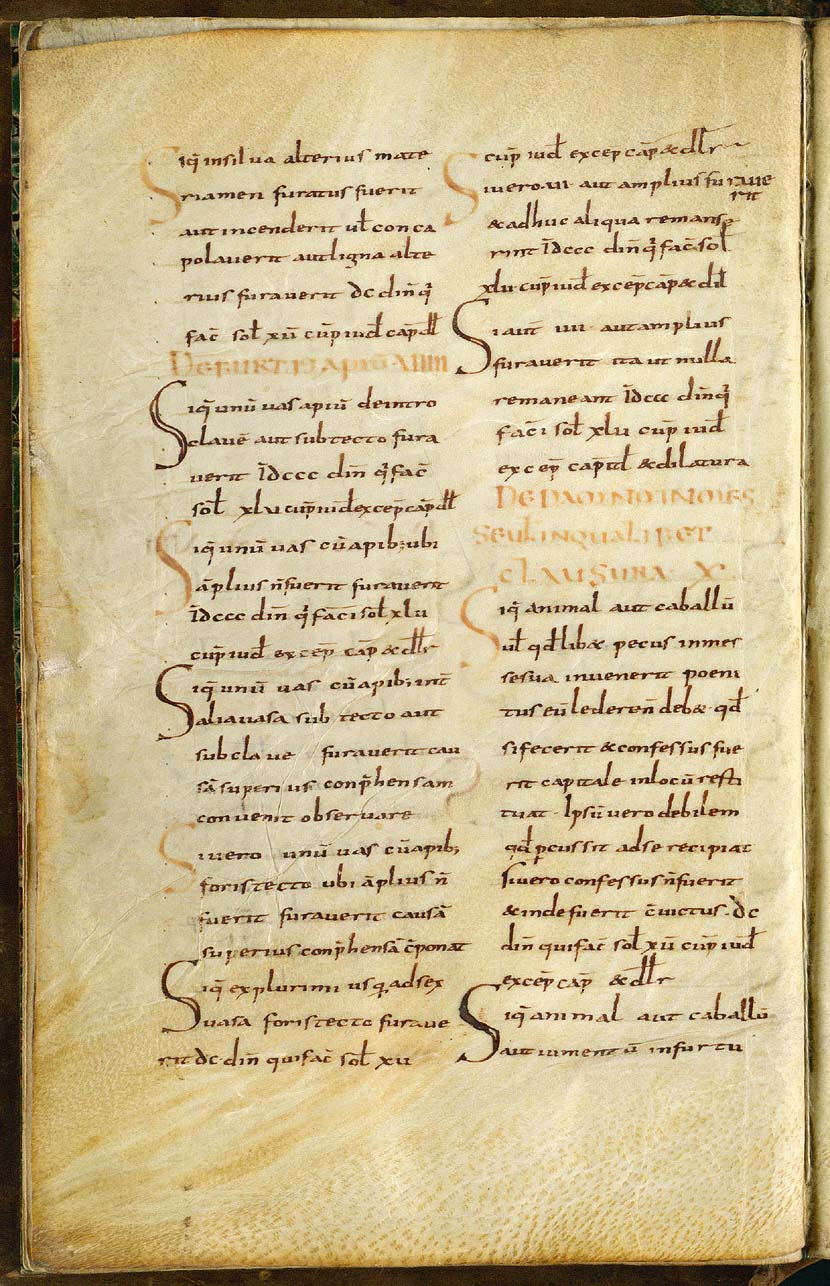 Siq̄ in silua alterius mate
riamen furatus fuerit
aut incenderit ul̄ conca
polauerit aut ligna alte
rius furauerit dc din̄ q̄
fac̄ sol̄ xu cup̄ iud̄ cap̄ dl̄
De furtis apiū VIIII
Siq̄ unū uas apiū deintro
clauē aut sub tecto fura
uerit Īdccc din̄ q̄ fac̄
sol̄ xlu cup̄ iud̄ excep̄ cap̄ dl̄
Siq̄ unū uas cū apib; ubi
āplius n̄ fuerit furauerit
Īdccc din̄ q̄ fac̄ sol̄ xlu
cup̄ iud̄ excep̄ cap̄ & dl̄r
Siq̄ unū uas cū apib; int̄
alia uasa sub tecto aut
sub claue furauerit cau
sā superius conp̄hensam
conuenit obseruare
Siuero unū uas cū apib;
foris tecto ubi āplius n̄
fuerit furauerit causā
superius conp̄hensā c̄ponat
Siq̄ explurimi usq; ad sex
uasa foris tecto furaue
rit dc din̄ qui fac̄ sol̄ xu
cup̄ iud̄ excep cap̄ & dl̄r
Siuero uii aut amplius furaue
rit
& adhuc aliqua remanse
rint Īdccc din̄ q̄ fac̄ sol̄
xlu cup̄ iud̄ excep̄ cap̄ & dil̄
Si aut̄ uii aut amplius
furauerit ita ut nulla
remaneant Īdccc din̄ q̄
fac̄ sol̄ xlu cup̄ iud̄
excep̄ capit̄l & dilatura
De damno in mes
se uel in qualibet
clausura X
Siq̄ animal aut caballū
ul̄ qd̄lib& pecus in mes
se sua inuenerit peni
tus eū ledere n̄ deb& qd̄
si fecerit & confessus fue
rit capitale in locū resti
tuat Ipsū uero debilem
qd̄ p̄cussit ad se recipiat
Siuero confessus n̄ fuerit
& inde fuerit c̄uictus dc
din̄ qui fac̄ sol̄ xu cup̄ iud̄
excep̄ cap̄ & dl̄r
Siq̄ animal aut caballū
aut iumentū in furtu